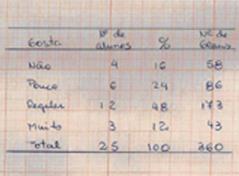 Gosta Nº de alunos % Nº de Graus
Não 4 16 58
Pouco 6 24 86
Regular 12 48 173
Muito 3 12 43
Total 25 100 360